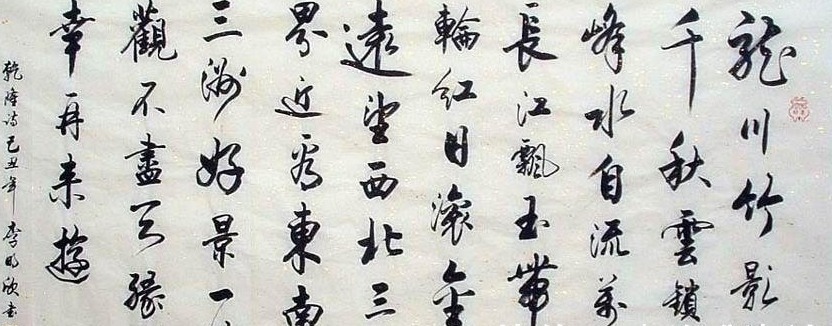 龍川竹影
千秋雲鎖
峰水自流萬
長江飄玉帶
輪紅日滾金
遠望西北三
界近東南
三洲好景一
觀不盡天緣
幸再來遊
乾隆詩己丑年李明欣書